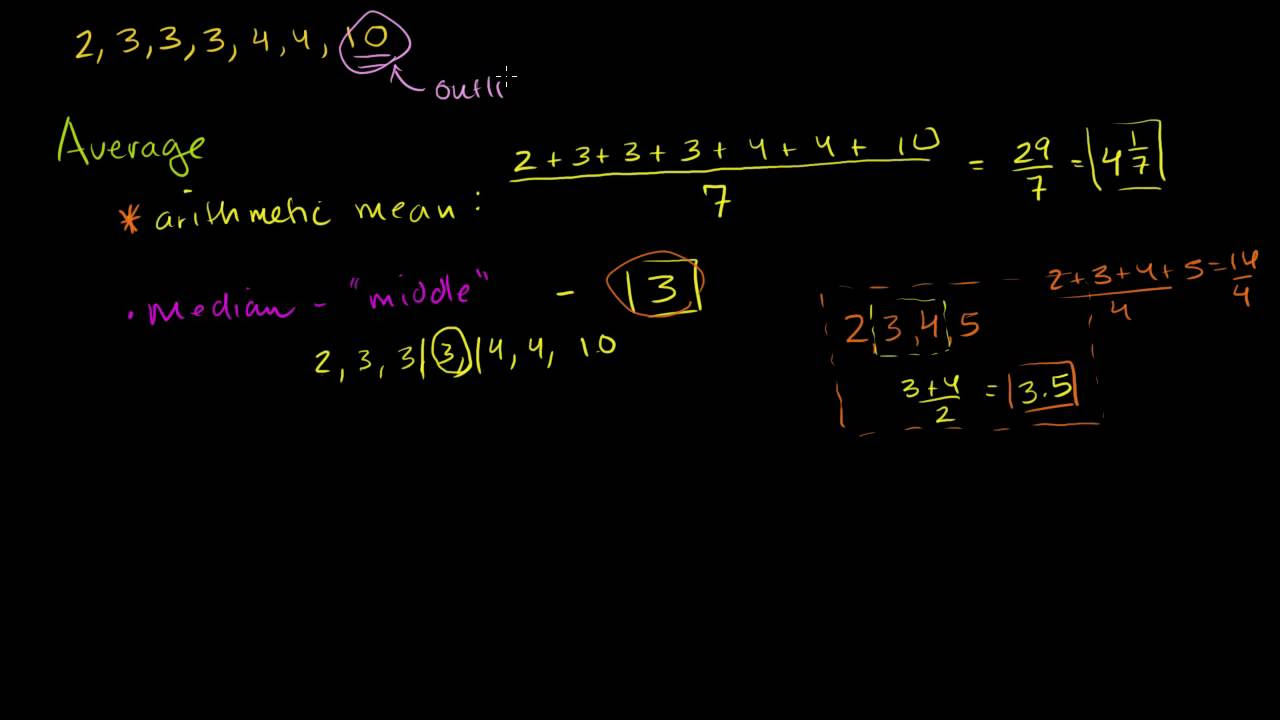 2, 3, 3, 3, 4, 4, 10
outli
Average
* arithmetic mean:
2 + 3 + 3 + 3 + 4 + 4 + 10
7
= 29/7 = 4 1/7
• median - "middle" - 3
2, 3, 3 | 3, | 4, 4, 10
2 + 3 + 4 + 5 = 14/4
4
2, 3, 4, 5
3+4/2 = 3.5